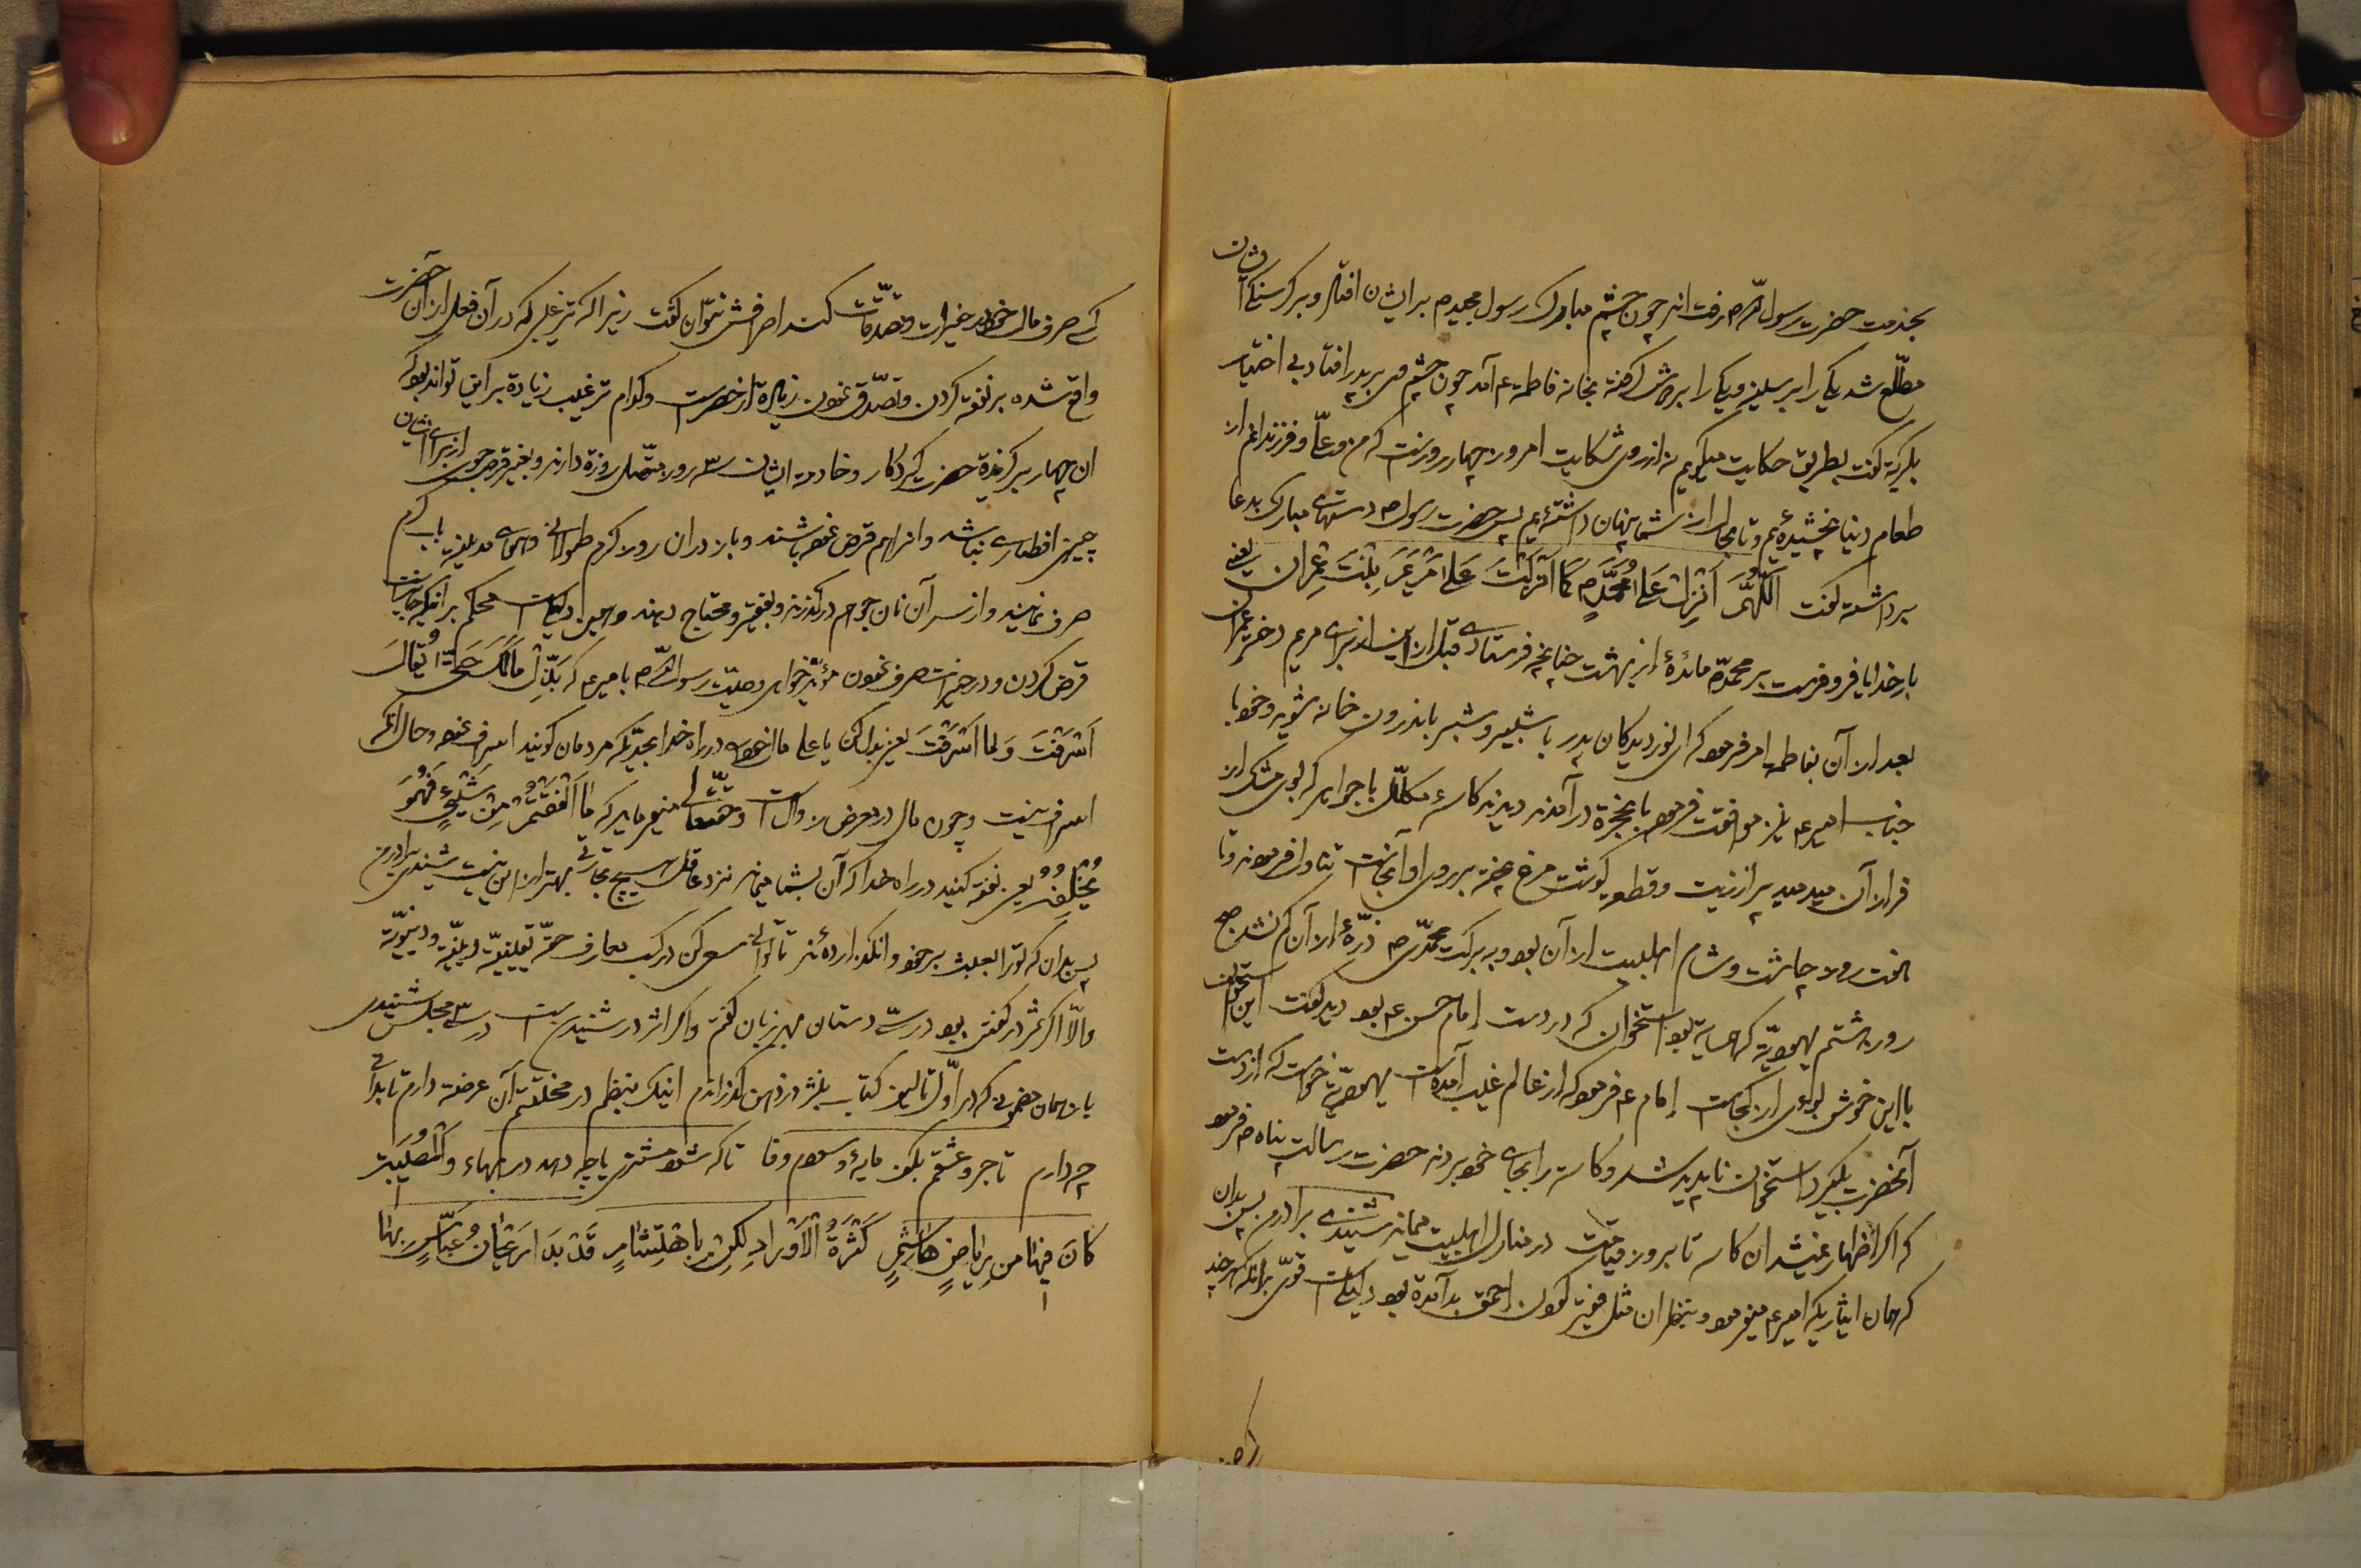 بخدمت حضرت رسول اللّه ص رفت اند چون چشم مبارک رسول مجید ص بر ایشان افتاد و بر گرسنگی ایشان
مطّلع شد یکی را بر سینه و یکی را بر دوش گرفته بخانه فاطمه ع آمد چون چشم وی بر پدر افتاد بی اختیار
بگریه گفت بطریق حکایت میگویم نه از روی شکایت امروز چهار روزست که من و علیّ و فرزندانم از
طعام دنیا نچشیده‌ٔیم و تا بحال از شما پنهان داشته‌ٔیم پس حضرت رسول ص دستهای مبارک بدعا
برداشته گفت اَللّهُمَّ اَنْزِلْ عَلی مُحَمَّدٍ ص کَما اَنْزَلْتَ عَلی مَرْیَمَ بِنْتَ عِمْران یعنی
بار خدایا فرو فرست بر محمّد ص مائدهٔ از بهشت چنانچه فرستادی قبل از این از برای مریم دختر عمران
بعد از آن بفاطمه امر فرمود که ای نور دیدگان پدر با شبیر و شبر باندرون خانه شوید و خود با
جناب امیر ع نیز موافقت فرمود بآنحجره در آمدند دیدند کاسهٔ مکلّل بجواهر که بوی مشک از
فراز آن میدمید پر از زیت و قطعه گوشت مرغ پخته بر روی او آنجاست تناول فرمودند و تا
هفت روز چاشت و شام اهلبیت از آن بود و به برکت محمّدی ص ذرّهٔ از آن کم نشد صبح
روز هشتم یهودیّه که همسایه بود استخوان که در دست امام حسن ع بود دید گفت این استخوان
با این خوش بوئی از کجاست امام ع فرمود که از عالم غیب آمده است یهودیّه خواست که از دست
آنحضرت بگیرد استخوان ناپدید شد و کاسه را بجای خود بردند حضرت رسالت پناه ص فرمود
که اگر اظهار نمیشد آن کاسه تا بروز قیامت در منازل اهلبیت میماند شنیدی برادر من پس بدان
که همان ایثاریکه امیر ع میفرمود و بنظر آن مثل فقیر کودن احمق بد آمده بود دلیل است قوی بر آنکه هر چند
کسی صرف مال خود در خیرات و تصدّقات کند اصرافش نتوان گفت زیرا که ترغیبی که در آن فعل از آن حضرت
واقع شده بر نفقه کردن و تصدّق نمودن زیاده از حصرست و کدام ترغیب زیاده بر این تواند بود که
ان چهار برگزیدهٔ حضرت کردگار و خادمه ایشان ۳ روز متّصل روزه دارند و بغیر قرص جوی از برای ایشان
چیزی افطاری نباشد و انرا هم قرض نموده باشند و باز در ان روز گرم طولانی و هوای مدینه بآب گرم
صرف نمایند و از سر آن نان جو هم در گذرند و بفقیر و محتاج دهند و همین دلیل است محکم بر آنکه جایزست
قرض کردن و در خیرات صرف نمودن مؤیّد خوابی وصیّت رسول اللّه ص بامیر ع که بَذِّلْ مالَکَ حَتّی یُقالَ
اَسْرَفْتَ وَ لما اَسْرَفْتَ یعنی بذل کن یا علی مال خود را در راه خدا بحدّیکه مردمان گویند اسراف نمود و حال آنکه
اسراف نیست و چون مال در معرض زوالست و حقّتعالی میفرماید که ما اَنْفَقْتُمْ مِنْ شَیْیءٍ فَهُوَ
یُخْلِفُهُ یعنی نفقه کنید در راه خدا که آن بشما میماند نزد عاقل هیچ تجارتی بهتر از این نیست شنیدی برادر من
پس بدان که تو را بعبث بر خود وانگذارده‌ٔند تا توانی سعی کن در کسب معارف حقّه یقینیّه دینیّه و دنیویّه
والّا اگر ثمر در گفتن بود در سی دستان بهر زبان گفتم و اگر اثر در شنیدن است در ۳ مجلس شنیدی
باز همان مضمونی که در اوّل تالیف کتاب بنثر در ذهن گذراندم اینک بنظم در مختتم آن عرضه دارم تا بدانی
چه دارم تاجر و عشقم بکف مایهٔ و سودم وفا تا که شود مشتری یا چه دهد در بهاء و الْمُصیبَت
کانَ فیها من رِیاضٍ هاشِمیٍ کَثْرَةُ الْاَوْرادِ لکِنْ قَدْ بَدَ عَبّاسٍ بها